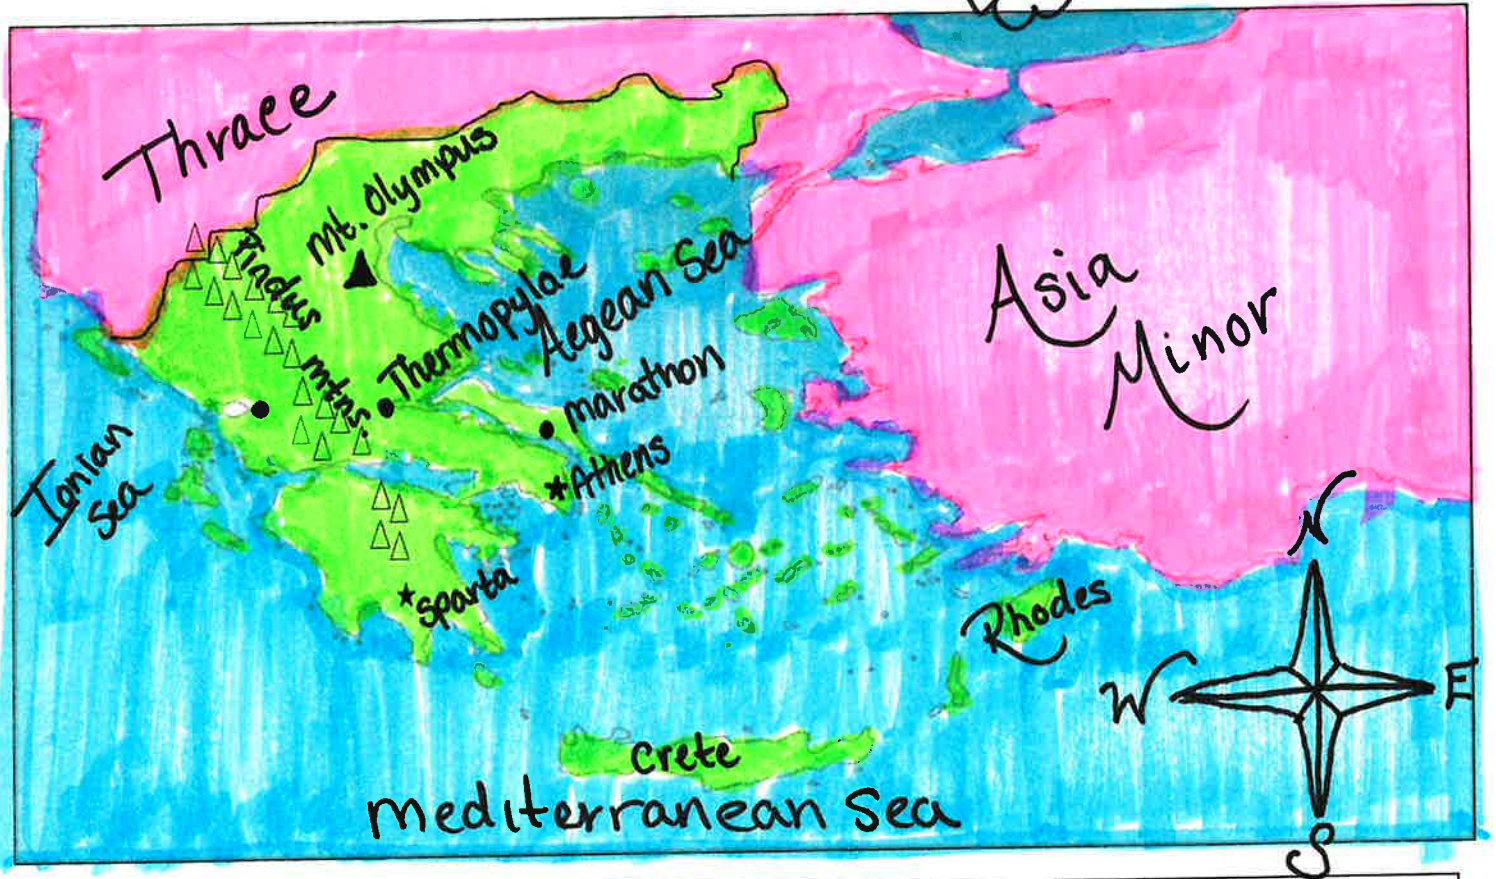 Thrace
Mt. Olympus
Pindus
mtns.
Thermopylae
Aegean Sea
marathon
Athens
Ionian
Sea
Sparta
Asia
Minor
Rhodes
Crete
Mediterranean Sea
N
W
E
S